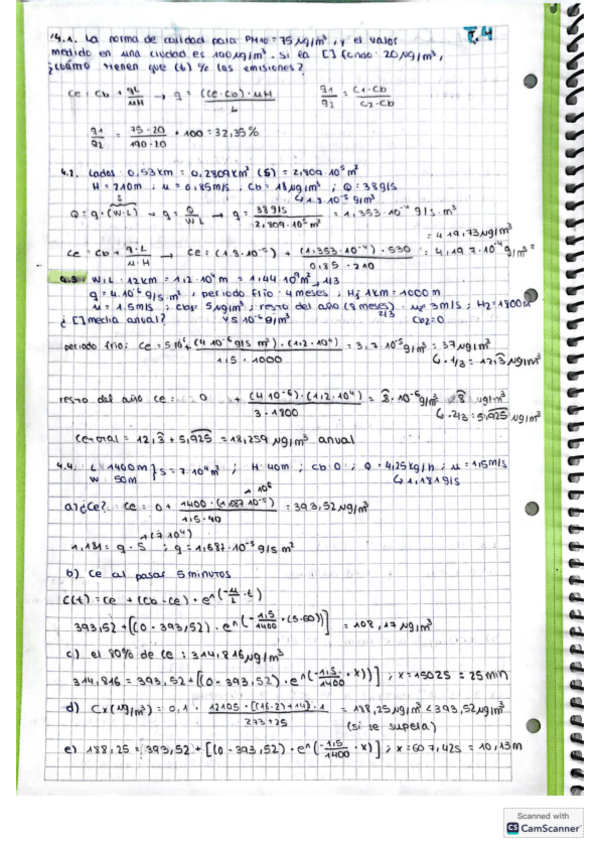 4.1. La norma de calidad para PM10 = 75 µg/m³, y el valor
T.4
medido en una ciudad es 100 µg/m³. Si la [ ] fondo: 20 µg/m³,
¿cuánto tienen que (b) % las emisiones?
Ce = Cb + qL/µH → q = (Ce-Cb)·µH/L    q1/q2 = C1-Cb/C2-Cb
q1/q2 = 75-20/190-20 · 100 = 32,35%
4.2. Lados: 0,53 km = 0,2809 km² (S) = 2,809·10⁵ m²
H = 210m ; u = 0,85 m/s, Cb = 18 µg/m³ ; Q = 38 g/s
↳ 1.8·10⁻⁵
Q = q·(W·L) → q = Q/WL → q = 38 g/s / 2,809·10⁵ m² = 1,353·10⁻⁴ g/s·m²
= 419,73 µg/m³
Ce = Cb + q·L/µ·H → Ce = (1.8·10⁻⁵) + (1,353·10⁻⁴)·530 / 0,85·210 = 4,197·10⁻⁴ g/m³ =
4.3 W,L = 12 km = 1,2·10⁴ m = 1,44·10⁸ m² → 1/3
q = 4·10⁻⁶ g/s·m², periodo frio: 4 meses, H: 1km = 1000 m
u = 1,5 m/s ; Cb = 5 µg/m³ ; resto del año (8 meses) u = 3 m/s ; H2 = 1800 m
2/3
¿ [ ] media anual?    5·10⁻⁶ g/m³    Cb2 = 0
periodo frio: Ce = 5·10⁻⁶ + (4·10⁻⁶ g/s m²)·(1,2·10⁴) / 1,5·1000 = 3,7·10⁻⁵ g/m³ = 37 µg/m³
↳ · 1/3 = 12,3 µg/m³
resto del año Ce = 0 + (4·10⁻⁶)·(1,2·10⁴) / 3·1800 = 8·10⁻⁶ g/m³ = 8 µg/m³
↳ · 2/3 = 5,925 µg/m³
Ce total = 12,3 + 5,925 = 18,259 µg/m³ anual
4.4. L = 1400 m } S = 7·10⁴ m² ; H: 40m ; Cb = 0 ; Q = 4,25 kg/h ; u = 1,5 m/s
W 50m    ↳ 1,181 g/s
· 10⁶
a) ¿Ce? Ce = 0 + 1400·(1,687·10⁻⁵) / 1,5·40 = 393,52 µg/m³
(7·10⁴)
1,181 = q · S ; q = 1,687·10⁻⁵ g/s m²
b) Ce al pasar 5 minutos
C(t) = Ce + (Cb - Ce) · e^(-u/L · t)
393,52 + [(0 - 393,52) · e^(-1,5/1400 · (5·60))] = 108,17 µg/m³
c) el 80% de Ce : 314,816 µg/m³
314,816 = 393,52 + [(0 - 393,52) · e^(-1,5/1400 · x)] ; x = 1502s = 25 min
d) Cx (µg/m³) = 0,1 · 12105·[(16·2)+14]·1 / 273+25 = 188,25 µg/m³ < 393,52 µg/m³
(si se supera)
e) 188,25 = 393,52 + [(0 - 393,52) · e^(-1,5/1400 · x)] ; x = 607,42s = 10,13m
Scanned with
CS CamScanner